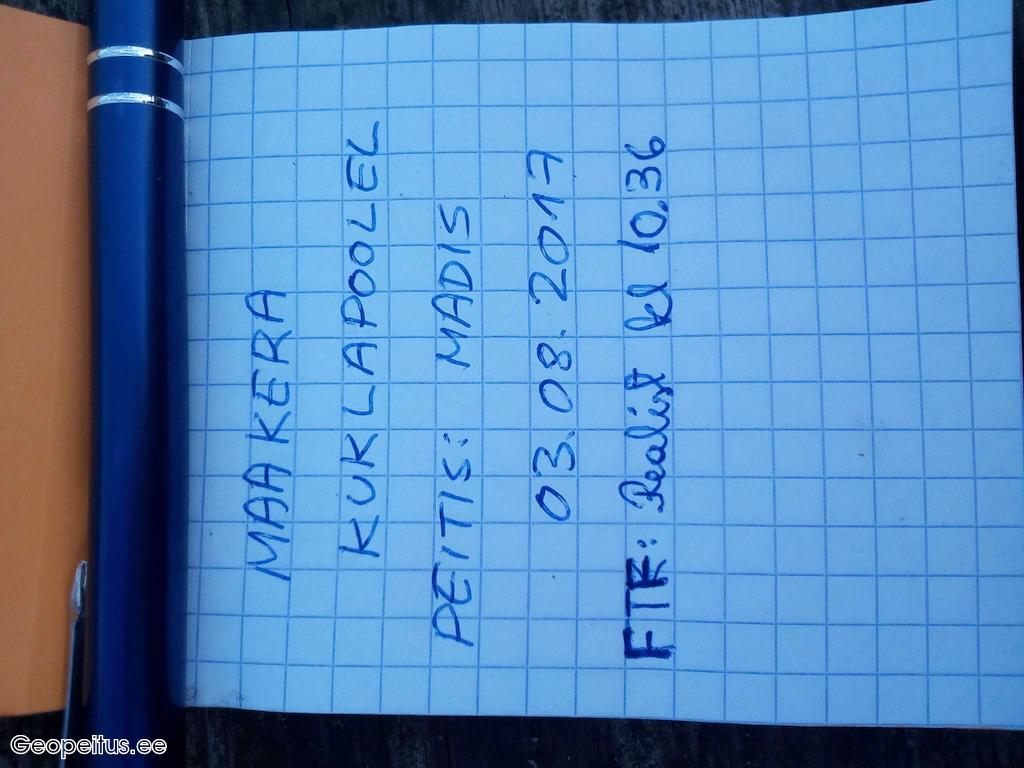 MAAKERA
KUKLAPOOLEL
PEITIS: MADIS
03.08.2017
FTF: Realist kl 10.36
Geopeitus.ee